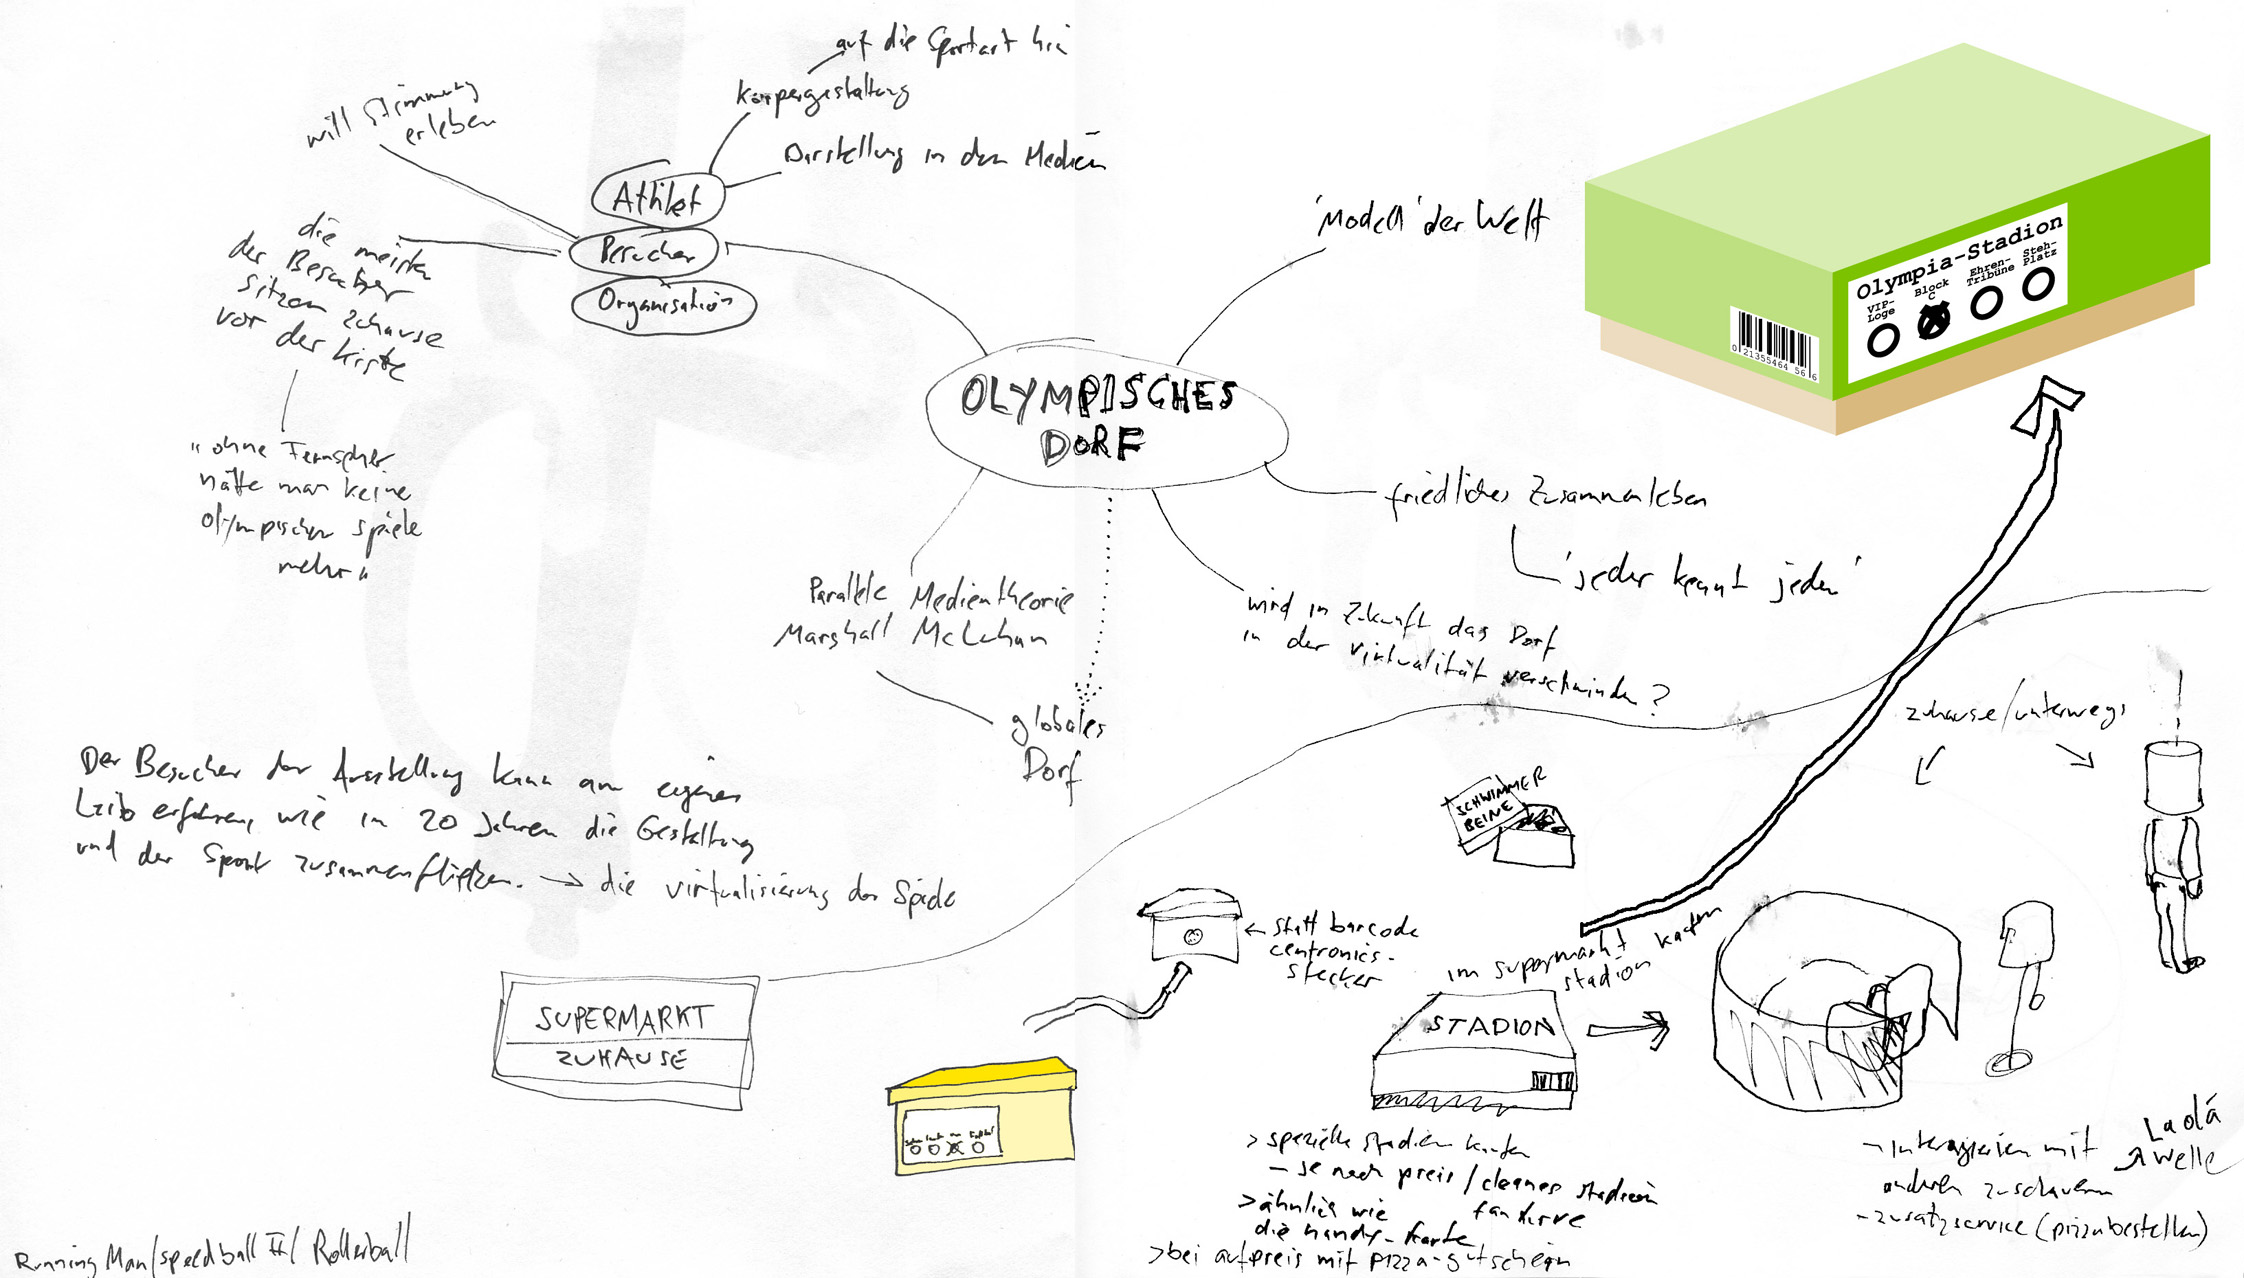 auf die Sportart hin
Körpergestaltung
Darstellung in den Medien
will Stimmung
erleben
Athlet
Besucher
Organisation
die meisten
der Besucher
sitzen zuhause
vor der Kiste
"ohne Fernseher
hätte man keine
olympischen Spiele
mehr"
'Modell' der Welt
OLYMPISCHES
DORF
friedliches Zusammenleben
'jeder kennt jeden'
wird in Zukunft das Dorf
in der Virtualität verschwinden?
Parallele Medientheorie
Marshall McLuhan
globales
Dorf
Olympia-Stadion
VIP-
Loge
Block
C
Ehren-
Tribüne
Steh-
Platz
0 21355464 56 6
Der Besucher der Ausstellung kann am eigenen
Leib erfahren, wie in 20 Jahren die Gestaltung
und der Sport zusammenfließen. → die Virtualisierung der Spiele
SUPERMARKT
ZUHAUSE
zuhause/unterwegs
SCHWIMMER
BEINE
← statt barcode
centronics-
stecker
im supermarkt
stadion kaufen
STADION
> spezielle Stadien kaufen
- je nach preis / cleanes stadion
fankurve
> ähnlich wie
die handy-karte
> bei aufpreis mit pizza-gutschein
- interagieren mit
anderen zuschauern
La olá
welle
- zusatzservice (pizzabestellen)
Running Man/speedball II/ Rollerball